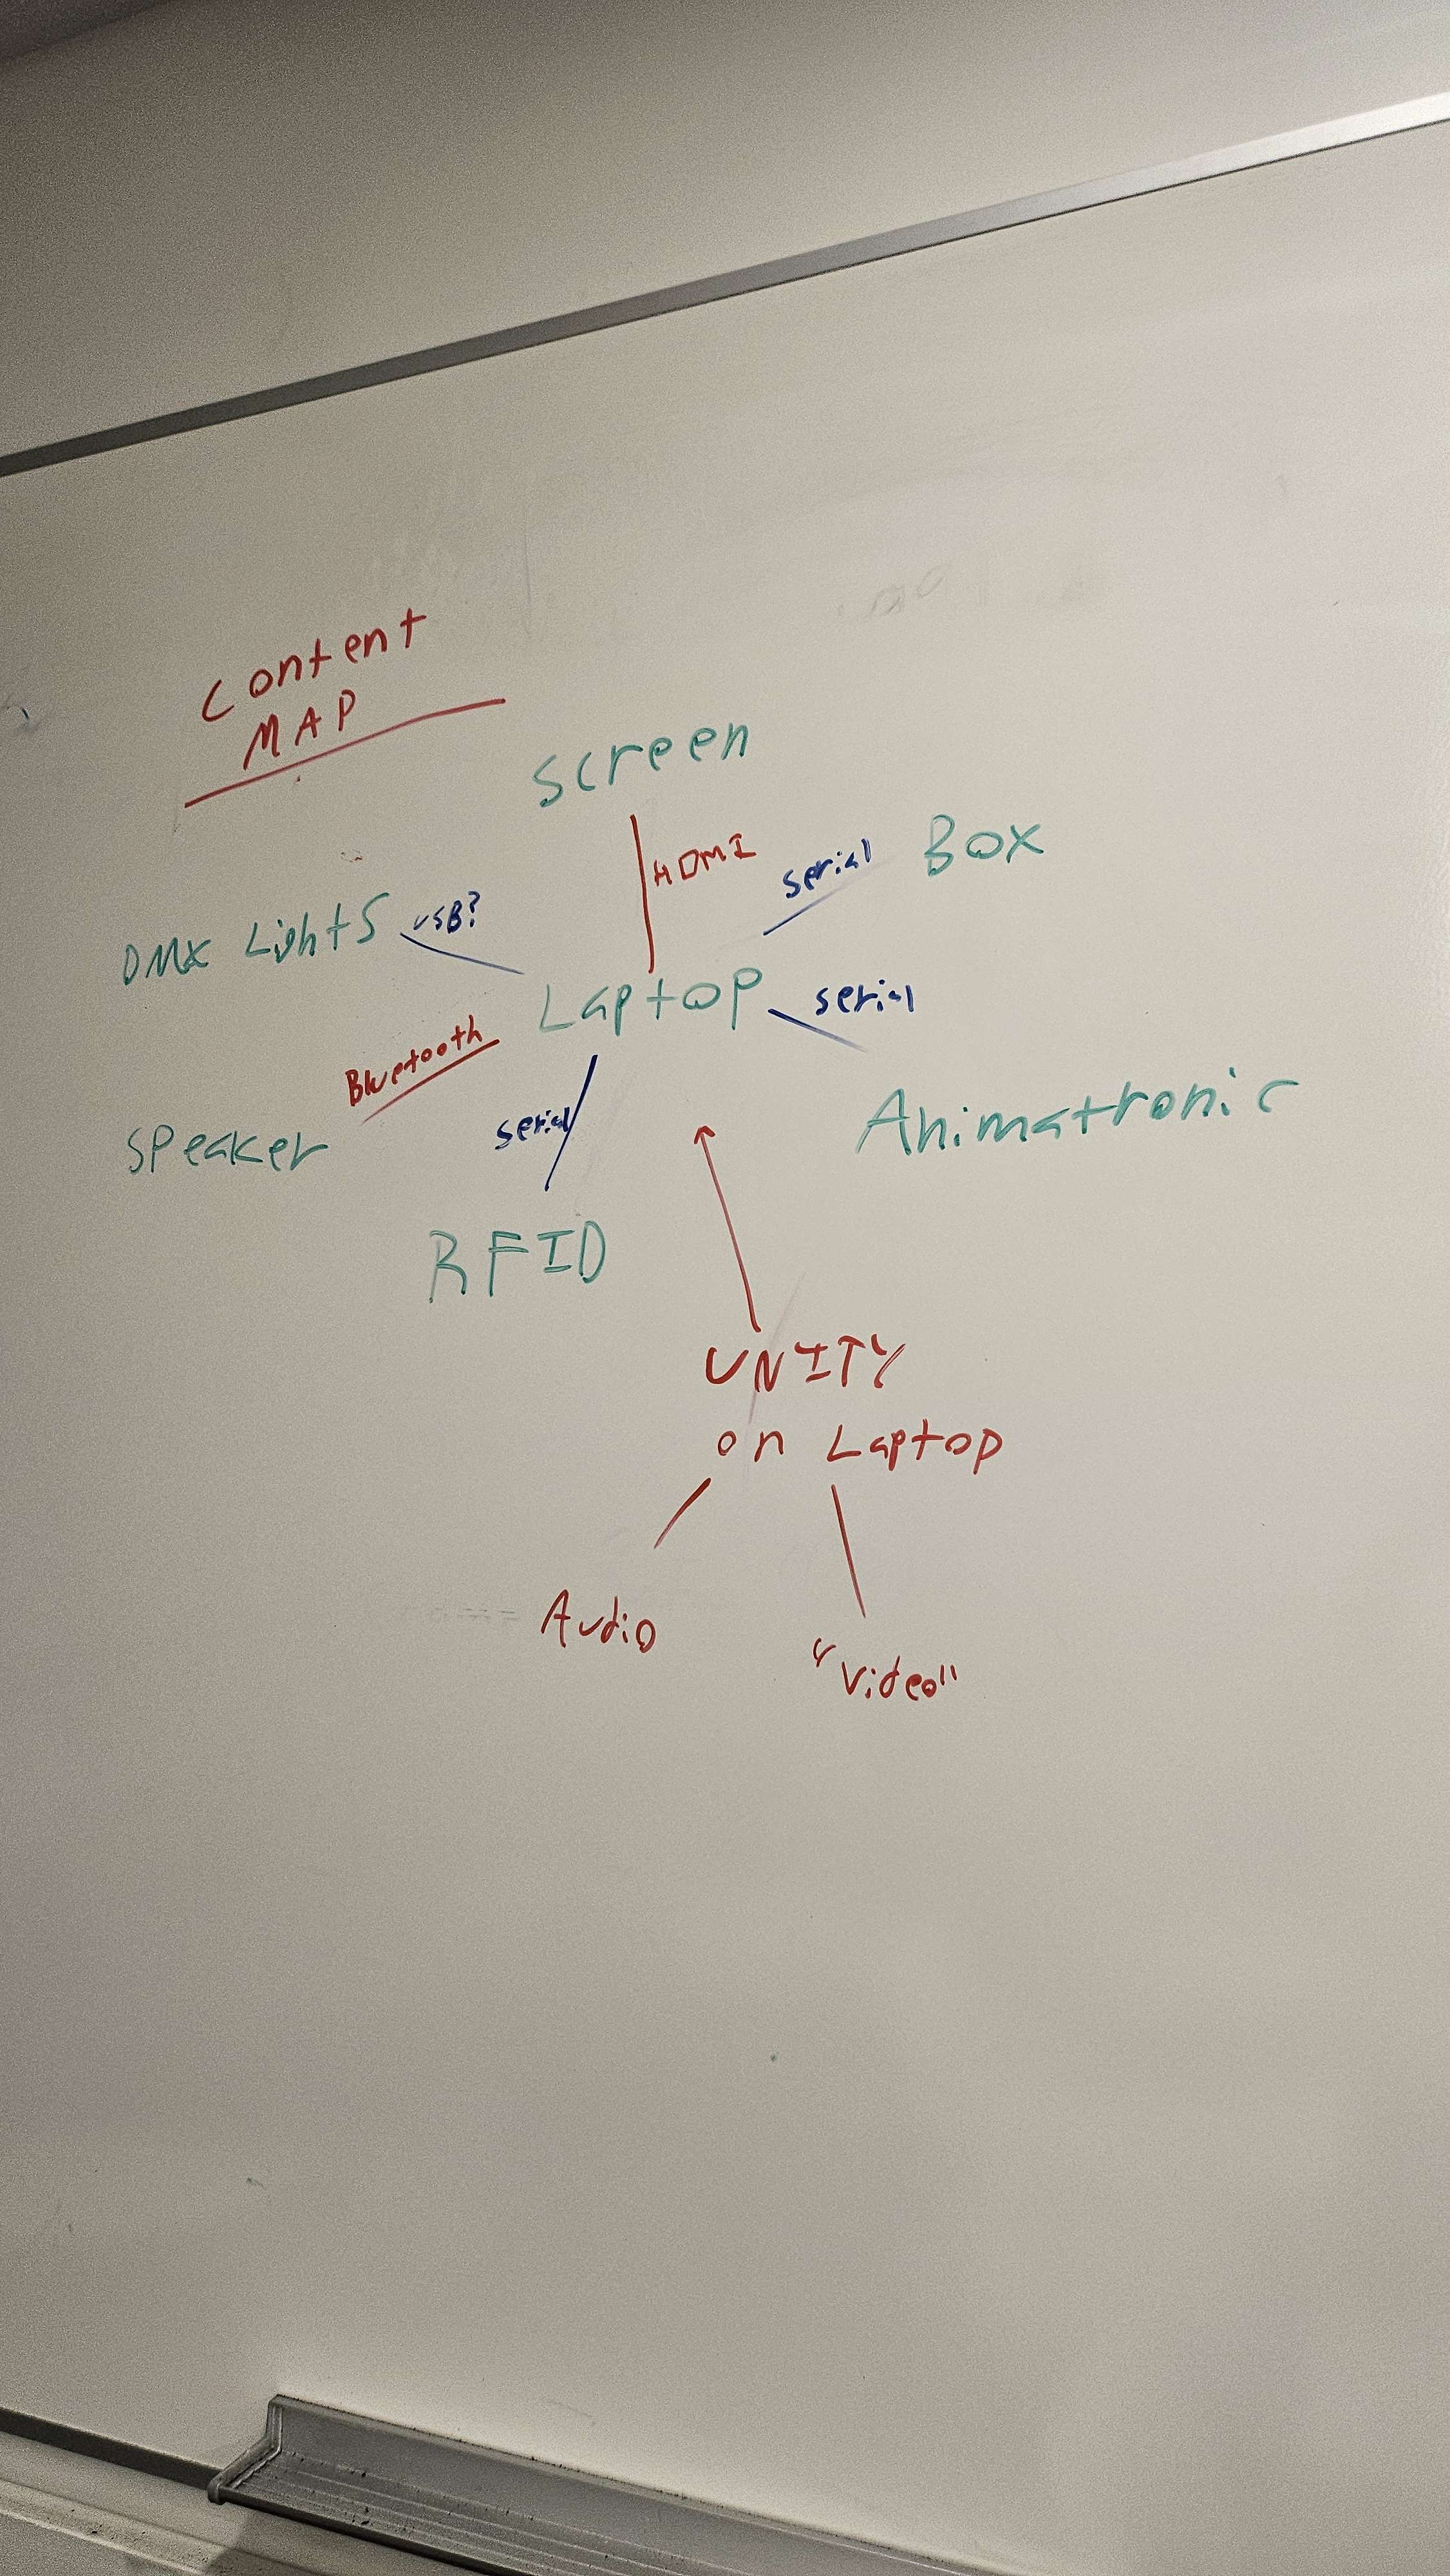 Content
MAP
Screen
HDMI
serial
BOX
DMX Lights
USB?
Laptop
serial
Bluetooth
serial
Speaker
Animatronic
RFID
UNITY
on Laptop
Audio
"Video"